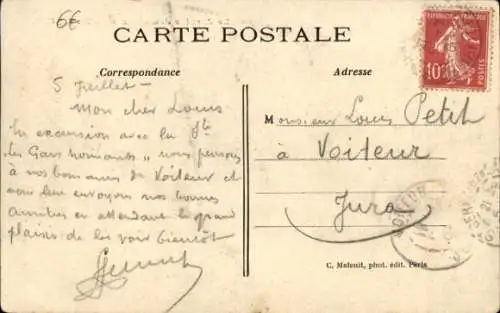 6€
CARTE POSTALE
Correspondance
Adresse
REPUBLIQUE FRANÇAISE
10c
POSTES
5 Juillet –
Mon cher Louis
En excursion avec la Sté
"les Gars normands" nous pensons
à nos bons amis de Voiteur et
nous leur envoyons nos bonnes
amitiés en attendant le grand
plaisir de les voir bientôt
Monsieur Louis Petit
à Voiteur
Jura
C. Malcuit, phot. édit. Paris